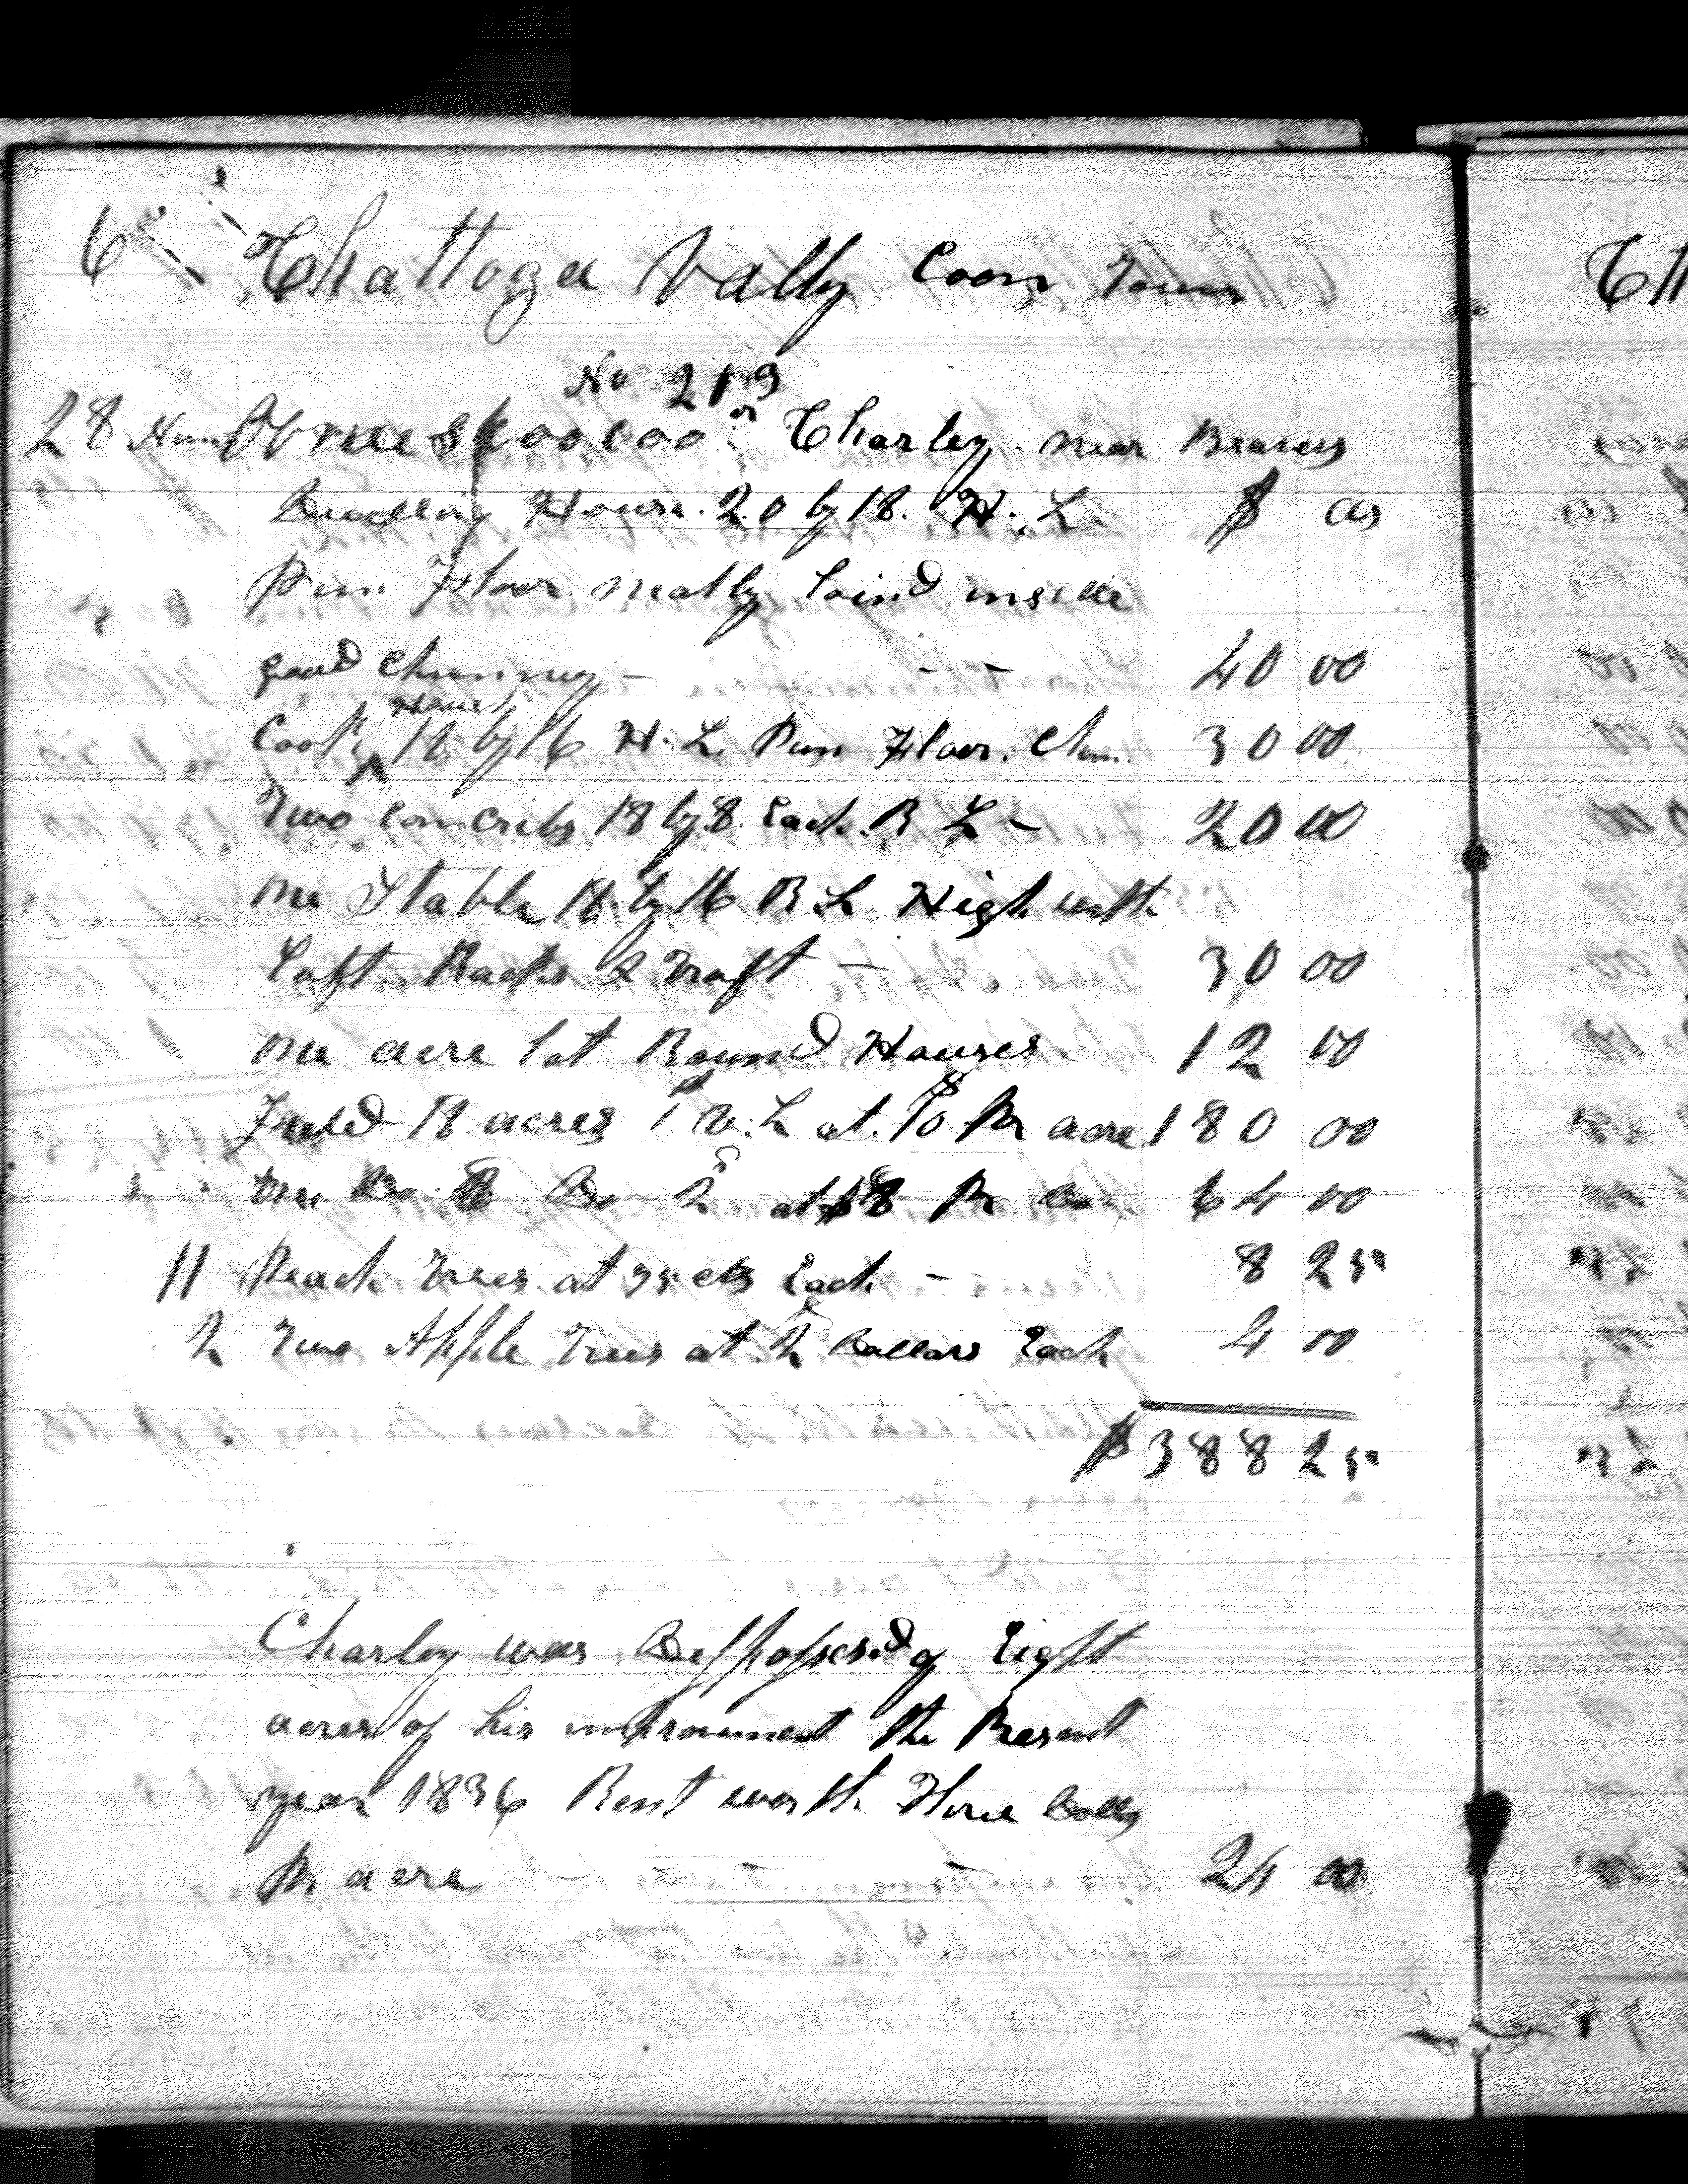 6 Chattoga Vally Coon Town
No 213
28 Num or Charley near Beavers
Dwelling House 20 by 18. H. L. $ Cts
Pun Floor neatly Loind inside
good Chimney - - - 40 00
Cook House 18 by 16 H. L. Pun Floor. Chm. 30 00
Two Corn cribs 18 by 8. Each. R L - 20 00
one Stable 18 by 16 R L High with
Loft Racks & Troft - 30 00
one acre lot Round Houses. 12 00
Field 18 acres 1st. Q. L at $10 Pr acre 180 00
one Do. 8 Do 2 at $8 Pr Do 64 00
11 Peach Trees. at 75 cts Each - - 8 25
2 Two Apple Trees at 2 Dollars Each 4 00
$388 25
Charley was Desspossesd of Eight
acres of his improvement the Present
year 1836 Rent worth Three Dolls
Pr acre - - - - 24 00